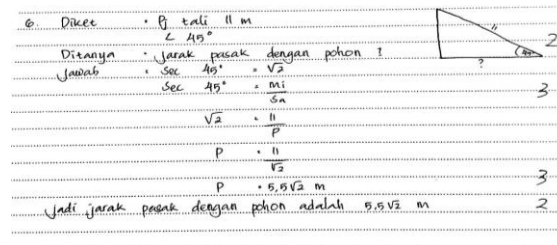 6. Diket : Pj tali 11 m
∠ 45°
Ditanya : Jarak pasak dengan pohon ?
Jawab : Sec 45° = √2
Sec 45° = mi/sa
√2 = 11/P
P = 11/√2
P = 5,5√2 m
Jadi jarak pasak dengan pohon adalah 5,5√2 m
11
45°
?
2
3
3
2